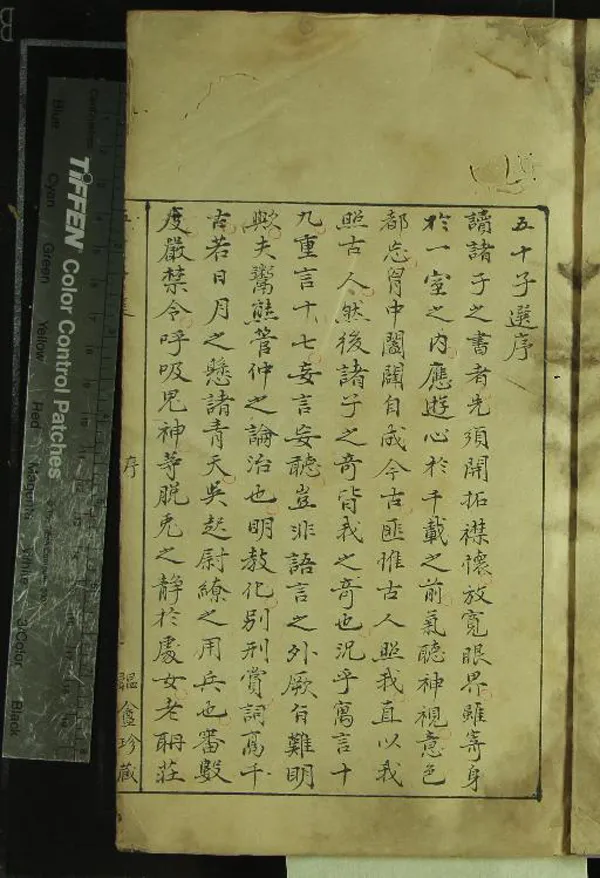 五十子選序
讀諸子之書者先須開拓襟懷放寬眼界雖寄身
於一室之内應遊心於千載之前氣聽神視意色
都忘胷中闔闢自成今古匪惟古人照我直以我
照古人然後諸子之竒皆我之竒也況乎寓言十
九重言十七妄言妄聽豈非語言之外厥旨難明
歟夫鬻熊管仲之論治也明教化别刑賞詞髙千
古若日月之懸諸青天吳起尉繚之用兵也審毁
度嚴禁令呼吸鬼神等脱兎之静於處女老耼莊
序
盦珍藏
TIFFEN Color Control Patches
Blue
Cyan
Green
Yellow
Red
Magenta
White
3/Color
Black